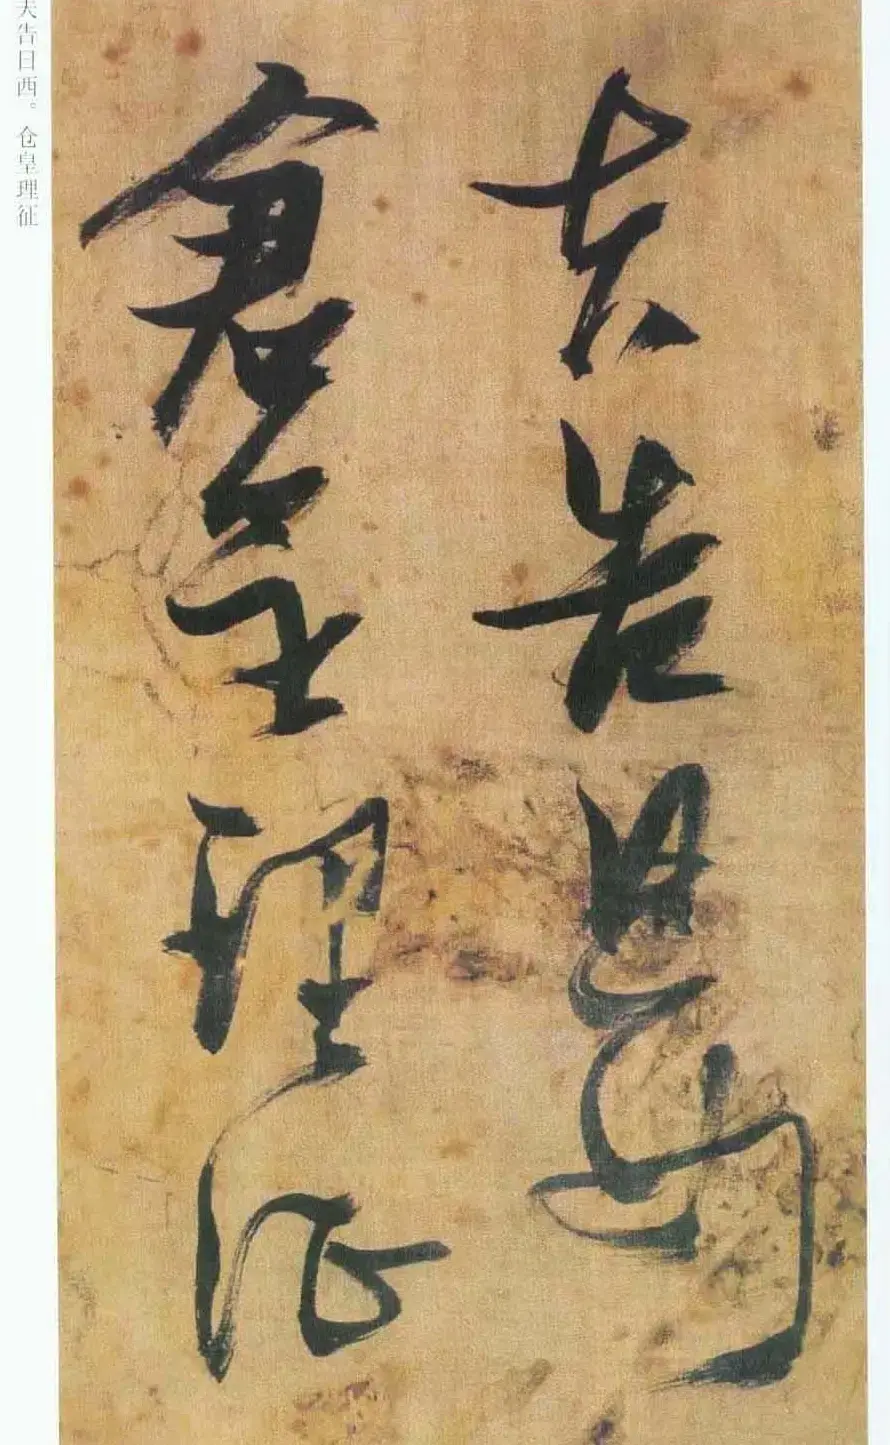 夫告日西
倉皇理征
夫告日西。仓皇理征